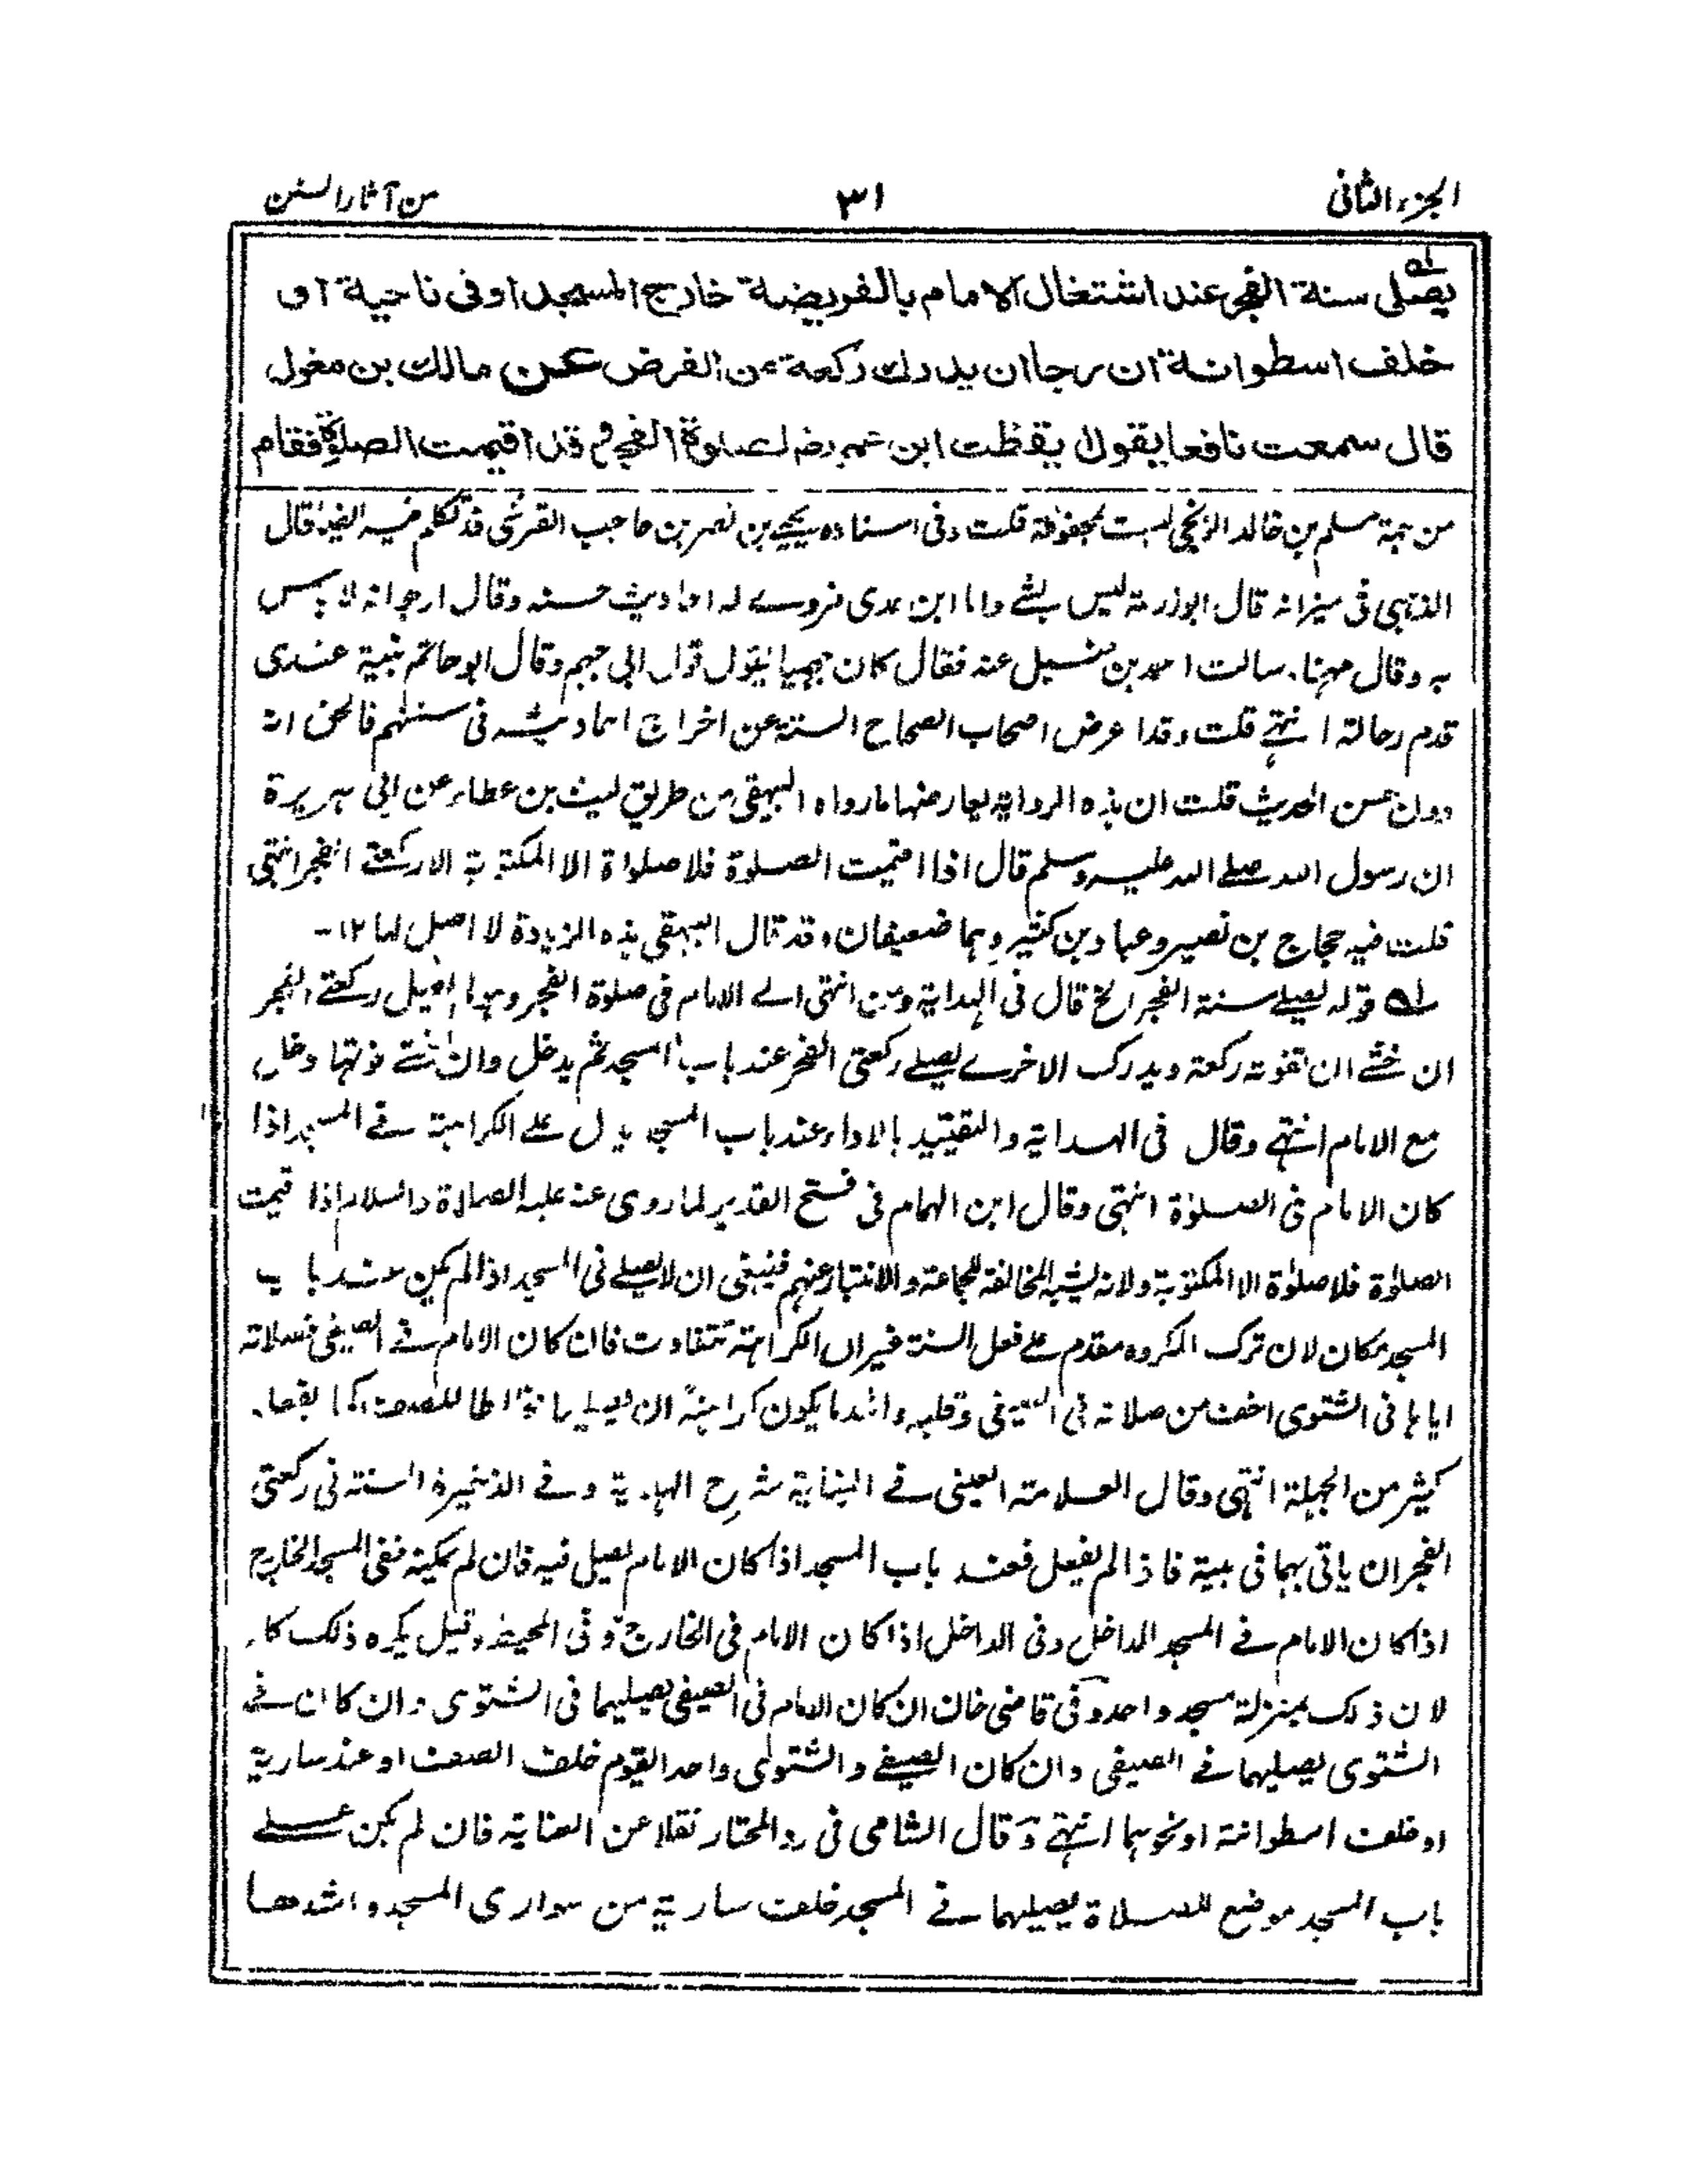 الجزء الثانى ٣١ من آثار السنن
يصلى سنة الفجر عند اشتغال الامام بالفريضة خارج المسجد او فى ناحية او
خلف اسطوانة ان رجا ان يدرك ركعة من الفرض عن مالك بن مغول
قال سمعت نافعا يقول ايقظت ابن عمر رضـ لصلوة الفجر و قد اقيمت الصلوة فقام
من جهة مسلم بن خالد الزنجى ليست بمحفوظة قلت وفى اسناده يحيى بن نصر بن حاجب القرشى قد تكلم فيه ايضا قال
الذهبى فى ميزانه قال ابوزرعة ليس بشئ واما ابن عدى فروے له احاديث حسنه وقال ارجو انه لا باس
به وقال مهنا سالت احمد بن حنبل عنه فقال كان جهميا يقول قول ابى جهم وقال ابو حاتم عندى
قدم رجاله انتهى قلت وقد اعرض اصحاب الصحاح الستة عن اخراج احاديثه فى سننهم فالحق انه
دون حسن الحديث قلت ان هذه الرواية يعارضها ما رواه البيهقى من طريق ليث بن عطاء عن ابى هريرة
ان رسول الله صلے الله عليه وسلم قال اذا اقيمت الصلوة فلا صلواة الا المكتوبة الا ركعتے الفجر انتهى
قلت فيه حجاج بن نصير وعباد بن كثير وهما ضعيفان وقد قال البيهقى هذه الزيادة لا اصل لها ١٢-
لـه قوله يصلے سنة الفجر الخ قال فى الهداية ومن انتهى الے الامام فى صلوة الفجر وهو لم يصل ركعتے الفجر
ان خشے ان تفوته ركعة ويدرك الاخرے يصلے ركعتى الفجر عند باب المسجد ثم يدخل وان خشے فوتها دخل
مع الامام انتهے وقال فى الهداية والتقييد بالاداء عند باب المسجد يدل علے الكراهة فے المسجد اذا
كان الامام فى الصلوٰة انتهى وقال ابن الهمام فى فتح القدير لما روى عنه عليه الصلاة والسلام اذا اقيمت
الصلوٰة فلا صلوٰة الا المكتوبة ولانه يشبه المخالفة للجماعة والانتباذ عنهم فينبغى ان لا يصلے فى المسجد اذا لم يكن عند باب
المسجد مكان لان ترك المكروه مقدم علے فعل السنة غير ان الكراهة تتفاوت فان كان الامام فے الصيفى فصلاته
اياها فى الشتوى اخف من صلاته فى الصيفى وقلبه واشد ما يكون كراهةً ان يصليها مخالطا للصف كما يفعله
كثير من الجهلة انتهى وقال العلامة العينى فے البناية شرح الهداية وفے الذخيرة السنة فى ركعتى
الفجر ان ياتى بهما فى بيته فاذا لم يفعل فعند باب المسجد اذا كان الامام يصلى فيه فان لم يمكنه ففى المسجد الخارج
اذا كان الامام فے المسجد الداخل وفى الداخل اذا كان الامام فى الخارج وفى المحيط وقيل يكره ذلك كله
لان ذلك بمنزلة مسجد واحد وفى قاضى خان ان كان الامام فى الصيفى يصليهما فى الشتوى وان كان فے
الشتوى يصليهما فے الصيفى وان كان الصيفے والشتوى واحد القوم خلف الصف او عند سارية
او خلف اسطوانة او نحوهما انتهے وقال الشامى فى رد المحتار نقلا عن العناية فان لم يكن علے
باب المسجد موضع للصلاة يصليهما فے المسجد خلف سارية من سوارى المسجد واشدها